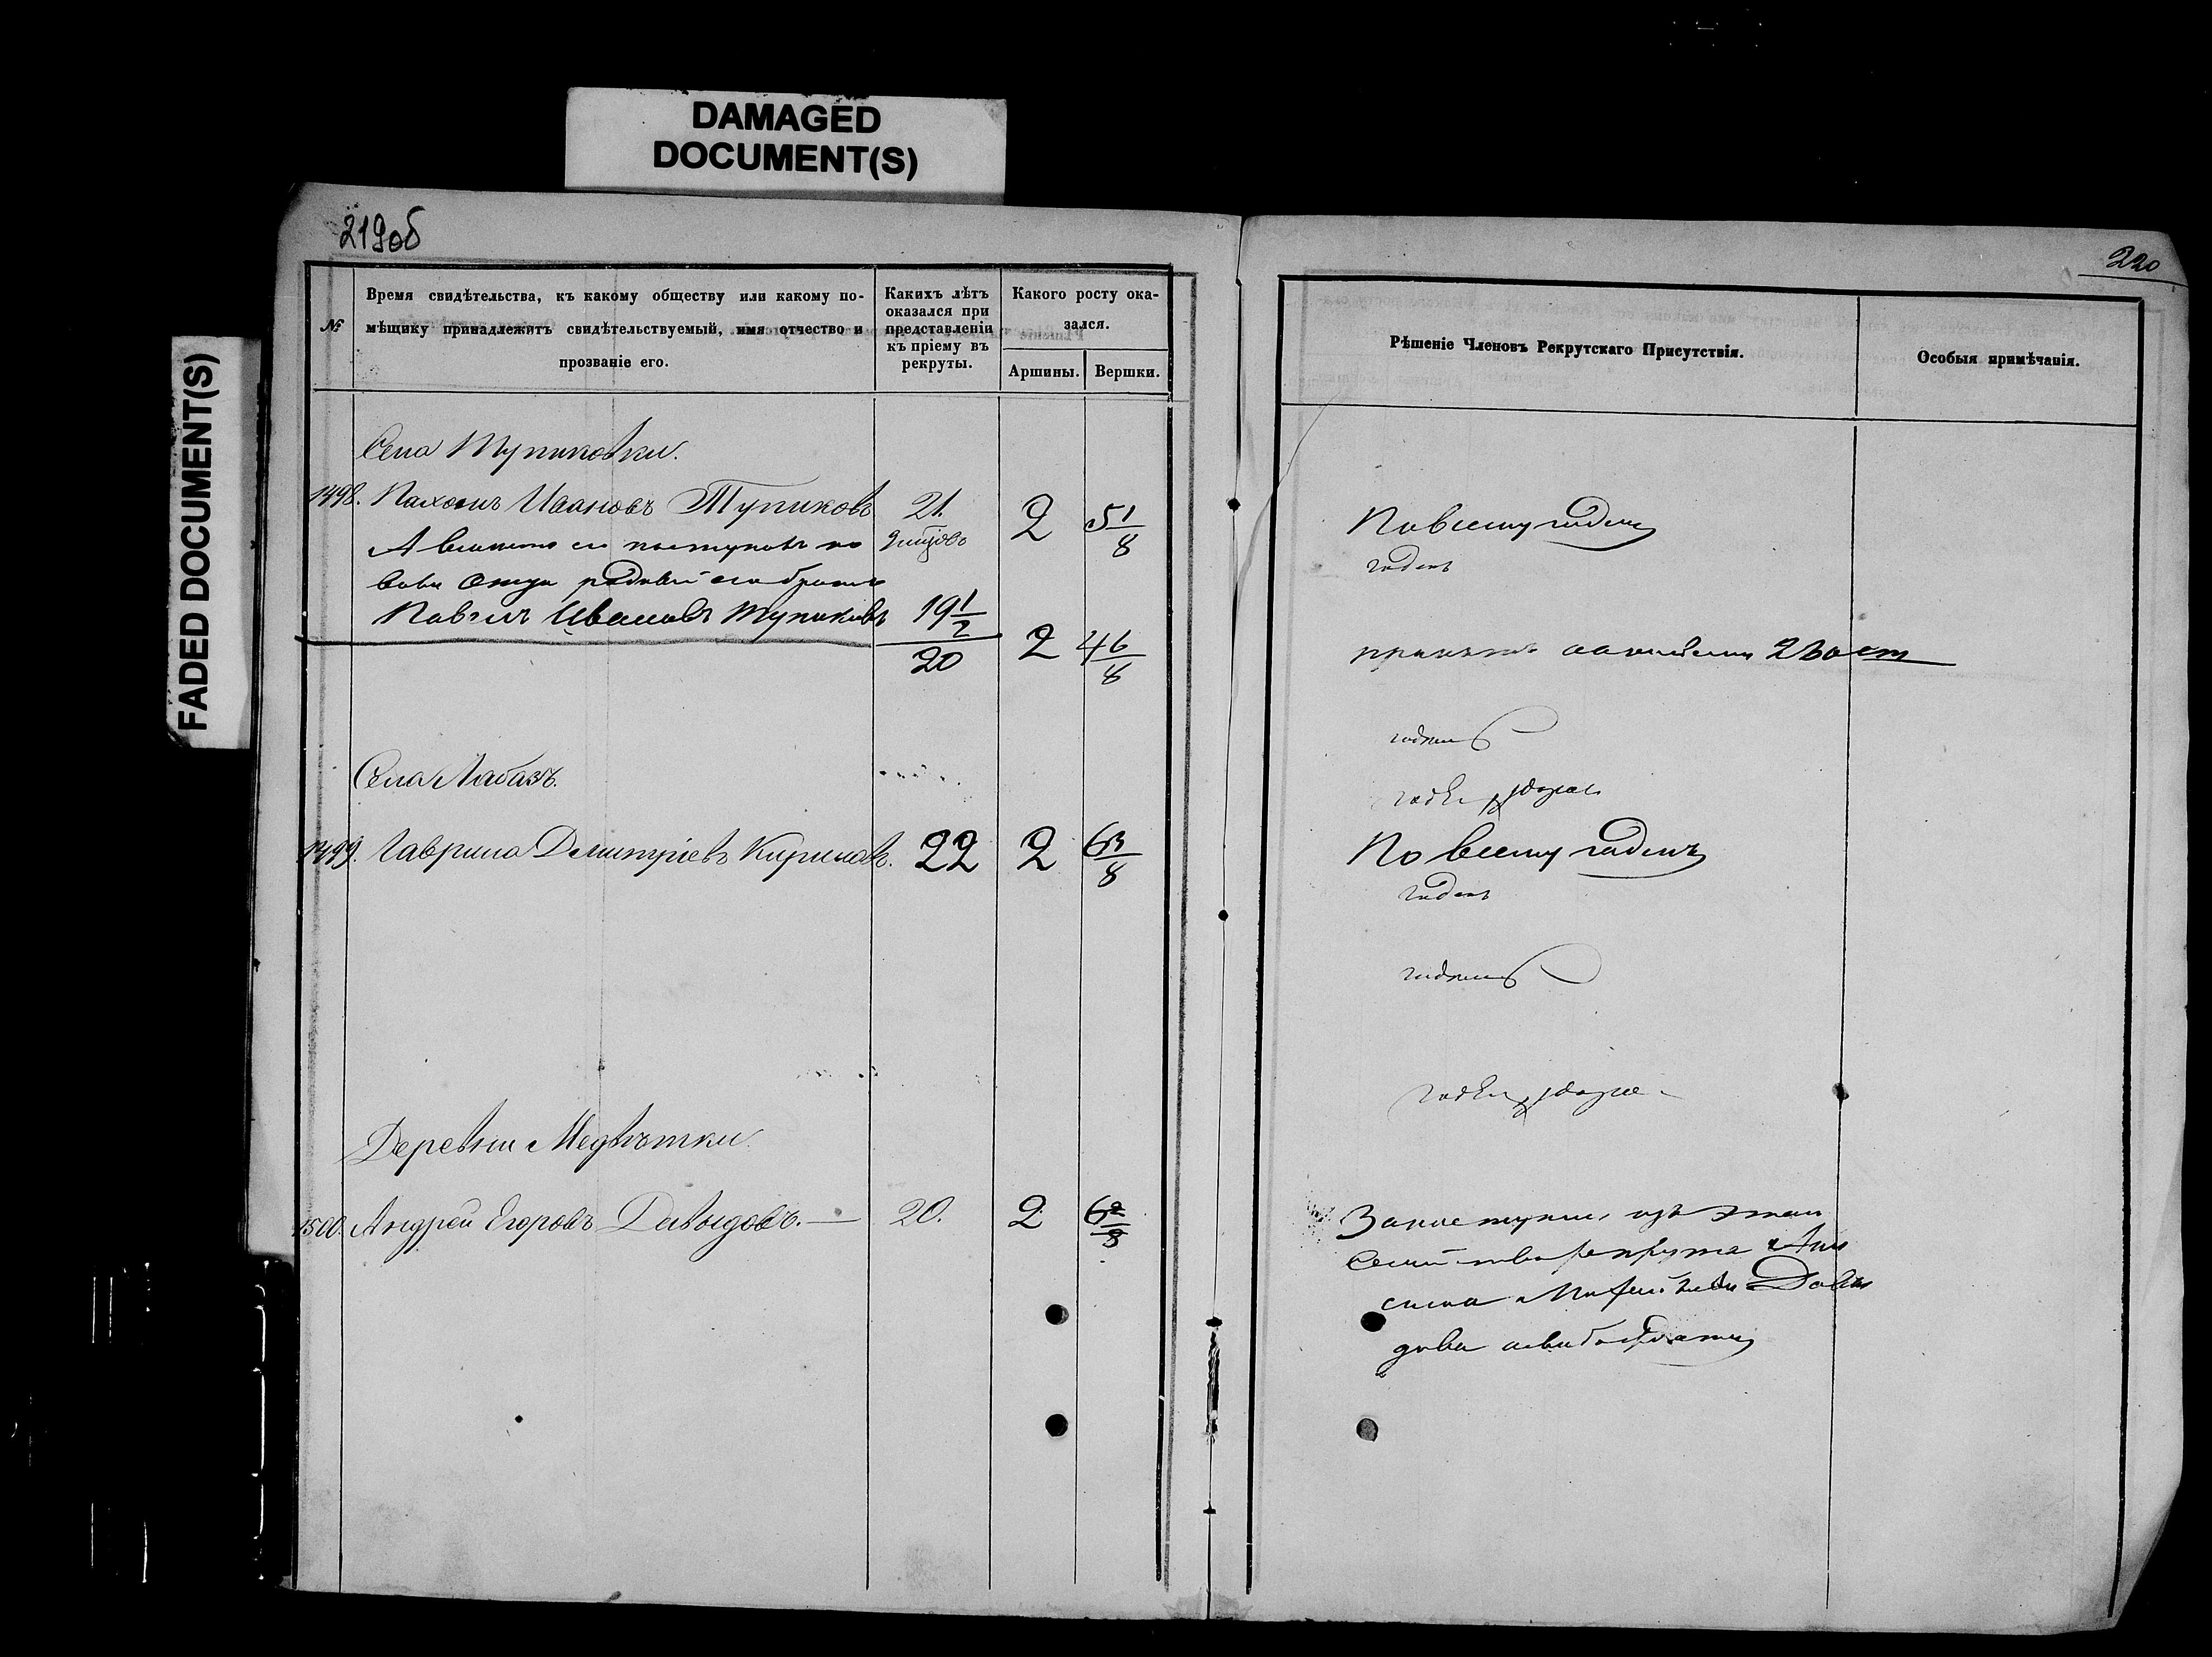 DAMAGED
DOCUMENT(S)
FADED DOCUMENT(S)
219об
№
Время свидѣтельства, къ какому обществу или какому по-
мѣщику принадлежитъ свидѣтельствуемый, имя отчество и
прозваніе его.
Какихъ лѣтъ
оказался при
представленіи
къ пріему въ
рекруты.
Какого росту ока-
зался.
Аршины.
Вершки.
Села Тупиковки.
1498. Пахомъ Ивановъ Тупиковъ 21. 2 5 1/8
А вмѣсто его поступилъ по
волѣ отца родной его братъ
Павелъ Ивановъ Тупиковъ 19 1/2
20 2 4 6/8
Села Лабазъ.
1499. Гаврила Дмитріевъ Кириловъ. 22 2 6 3/8
Деревни Медвѣтки
1500. Андрей Егоровъ Давыдовъ. — 20. 2 6 2/8
220
Рѣшеніе Членовъ Рекрутскаго Присутствія.
Особыя примѣчанія.
По всему годенъ
годенъ
принятъ
годенъ
По всему годенъ
годенъ
годенъ
За поступл. изъ этаго
семейства рекрута
Давы
дова освободить